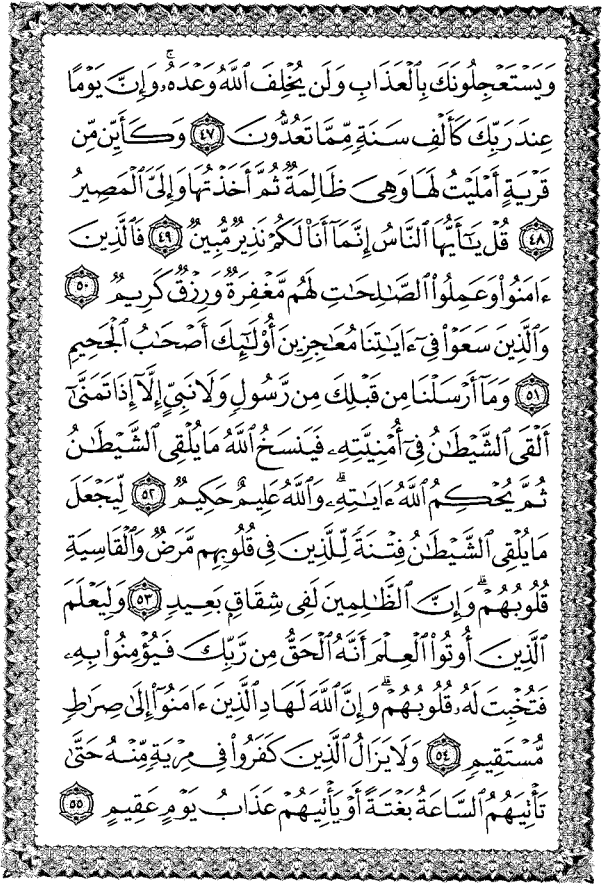 وَيَسۡتَعۡجِلُونَكَ بِٱلۡعَذَابِ وَلَن يُخۡلِفَ ٱللَّهُ وَعۡدَهُۥۚ وَإِنَّ يَوۡمًا
عِندَ رَبِّكَ كَأَلۡفِ سَنَةٖ مِّمَّا تَعُدُّونَ ٤٧ وَكَأَيِّن مِّن
قَرۡيَةٍ أَمۡلَيۡتُ لَهَا وَهِيَ ظَالِمَةٞ ثُمَّ أَخَذۡتُهَا وَإِلَيَّ ٱلۡمَصِيرُ
٤٨ قُلۡ يَـٰٓأَيُّهَا ٱلنَّاسُ إِنَّمَآ أَنَا۠ لَكُمۡ نَذِيرٞ مُّبِينٞ ٤٩ فَٱلَّذِينَ
ءَامَنُواْ وَعَمِلُواْ ٱلصَّـٰلِحَـٰتِ لَهُم مَّغۡفِرَةٞ وَرِزۡقٞ كَرِيمٞ ٥٠
وَٱلَّذِينَ سَعَوۡاْ فِيٓ ءَايَـٰتِنَا مُعَـٰجِزِينَ أُوْلَـٰٓئِكَ أَصۡحَـٰبُ ٱلۡجَحِيمِ
٥١ وَمَآ أَرۡسَلۡنَا مِن قَبۡلِكَ مِن رَّسُولٖ وَلَا نَبِيٍّ إِلَّآ إِذَا تَمَنَّىٰٓ
أَلۡقَى ٱلشَّيۡطَـٰنُ فِيٓ أُمۡنِيَّتِهِۦ فَيَنسَخُ ٱللَّهُ مَا يُلۡقِي ٱلشَّيۡطَـٰنُ
ثُمَّ يُحۡكِمُ ٱللَّهُ ءَايَـٰتِهِۦۗ وَٱللَّهُ عَلِيمٌ حَكِيمٞ ٥٢ لِّيَجۡعَلَ
مَا يُلۡقِي ٱلشَّيۡطَـٰنُ فِتۡنَةٗ لِّلَّذِينَ فِي قُلُوبِهِم مَّرَضٞ وَٱلۡقَاسِيَةِ
قُلُوبُهُمۡۗ وَإِنَّ ٱلظَّـٰلِمِينَ لَفِي شِقَاقِۭ بَعِيدٖ ٥٣ وَلِيَعۡلَمَ
ٱلَّذِينَ أُوتُواْ ٱلۡعِلۡمَ أَنَّهُ ٱلۡحَقُّ مِن رَّبِّكَ فَيُؤۡمِنُواْ بِهِۦ
فَتُخۡبِتَ لَهُۥ قُلُوبُهُمۡۗ وَإِنَّ ٱللَّهَ لَهَادِ ٱلَّذِينَ ءَامَنُوٓاْ إِلَىٰ صِرَٰطٖ
مُّسۡتَقِيمٖ ٥٤ وَلَا يَزَالُ ٱلَّذِينَ كَفَرُواْ فِي مِرۡيَةٖ مِّنۡهُ حَتَّىٰ
تَأۡتِيَهُمُ ٱلسَّاعَةُ بَغۡتَةً أَوۡ يَأۡتِيَهُمۡ عَذَابُ يَوۡمٍ عَقِيمٍ ٥٥